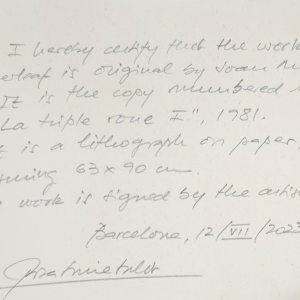 I hereby certify that the work
overleaf is original by Joan
It is the copy numbered
"La triple roue I", 1981.
It is a lithograph on paper,
63 x 90 cm.
work is signed by the artist
Barcelona, 12/VII/2023